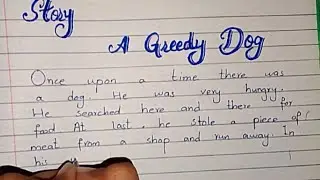 Story
A Greedy Dog
Once upon a time there was
a dog. He was very hungry.
He searched here and there for
food. At last, he stole a piece of
meat from a shop and run away. In
his